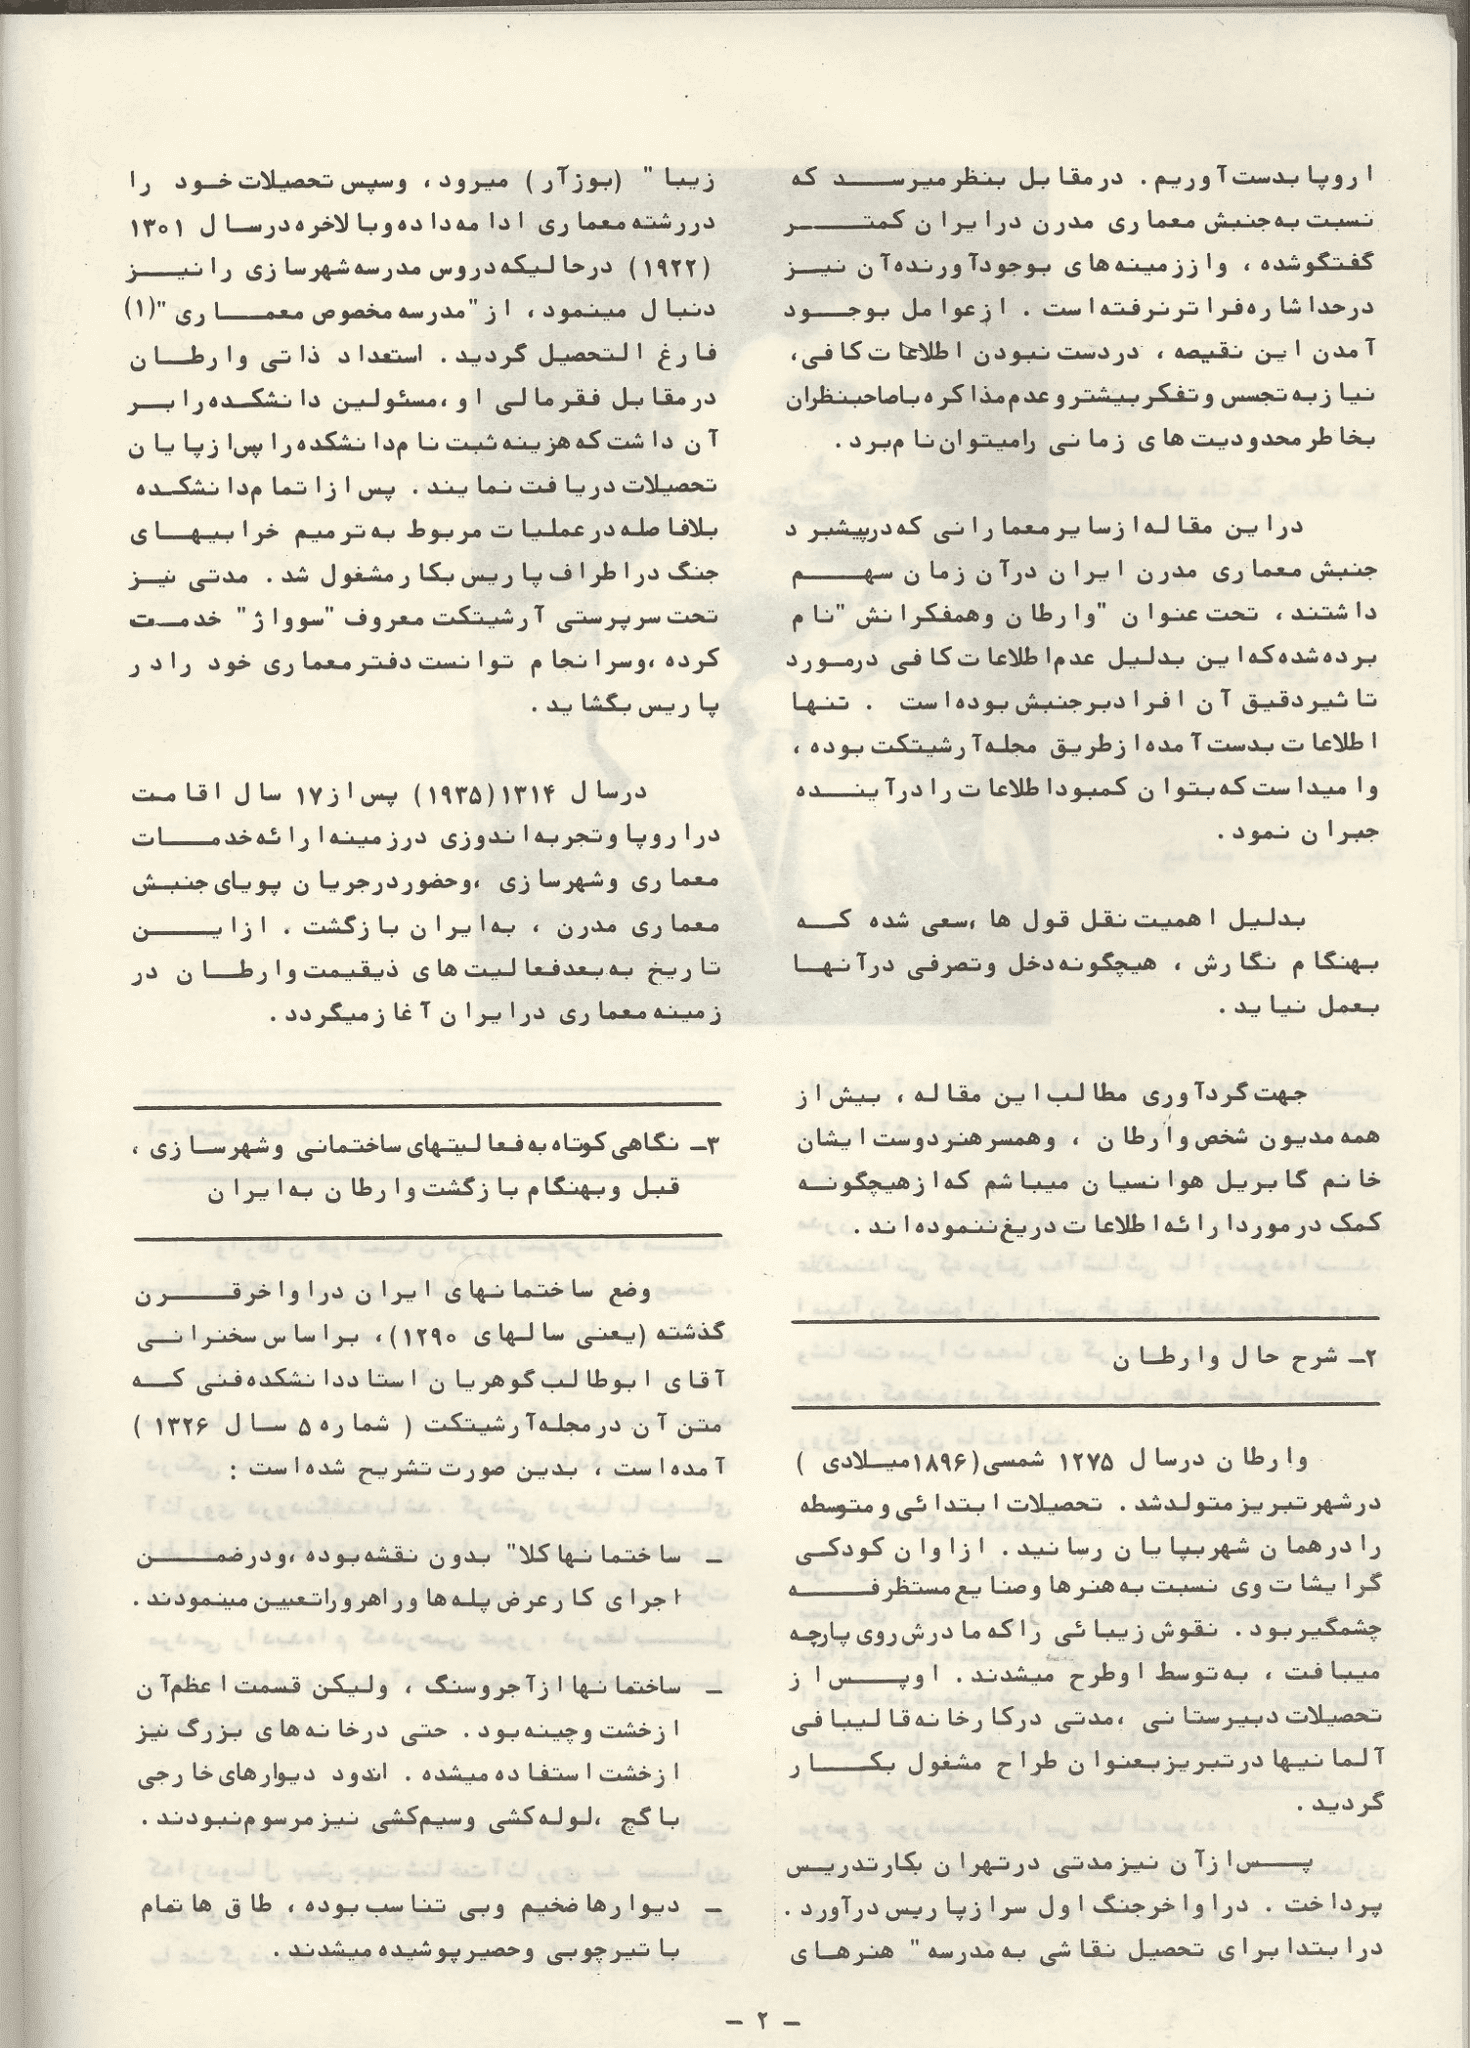 اروپا بدست آوریم. در مقابل بنظر میرسد که
نسبت به جنبش معماری مدرن در ایران کمتر
گفتگو شده ، و از زمینه های بوجود آورنده آن نیز
در حد اشاره فراتر نرفته است . از عوامل بوجود
آمدن این نقیصه ، در دست نبودن اطلاعات کافی،
نیاز به تجسس و تفکر بیشتر و عدم مذاکره با صاحبنظران
بخاطر محدودیت های زمانی را میتوان نام برد.
در این مقاله از سایر معمارانی که در پیشبرد
جنبش معماری مدرن ایران در آن زمان سهم
داشتند ، تحت عنوان "وارطان و همفکرانش" نام
برده شده که این بدلیل عدم اطلاعات کافی در مورد
تاثیر دقیق آن افراد بر جنبش بوده است . تنها
اطلاعات بدست آمده از طریق مجله آرشیتکت بوده ،
و امید است که بتوان کمبود اطلاعات را در آینده
جبران نمود.
بدلیل اهمیت نقل قول ها ،سعی شده که
بهنگام نگارش ، هیچگونه دخل و تصرفی در آنها
بعمل نیاید.
جهت گردآوری مطالب این مقاله ، بیش از
همه مدیون شخص وارطان ، و همسر هنر دوست ایشان
خانم گابریل هوانسیان میباشم که از هیچگونه
کمک در مورد ارائه اطلاعات دریغ ننموده اند.
۲ـ شرح حال وارطان
وارطان در سال ۱۲۷۵ شمسی(۱۸۹۶ میلادی )
در شهر تبریز متولد شد. تحصیلات ابتدائی و متوسطه
را در همان شهر بپایان رسانید. از اوان کودکی
گرایشات وی نسبت به هنرها و صنایع مستظرفه
چشمگیر بود. نقوش زیبائی را که مادرش روی پارچه
میبافت ، به توسط او طرح میشدند. او پس از
تحصیلات دبیرستانی ،مدتی در کارخانه قالیبافی
آلمانیها در تبریز بعنوان طراح مشغول بکار
گردید.
پس از آن نیز مدتی در تهران بکار تدریس
پرداخت . در اواخر جنگ اول سر از پاریس درآورد.
در ابتدا برای تحصیل نقاشی به مدرسه " هنرهای
زیبا " (بوزآر) میرود، و سپس تحصیلات خود را
در رشته معماری ادامه داده و بالاخره در سال ۱۳۰۱
(۱۹۲۲) در حالیکه دروس مدرسه شهرسازی را نیز
دنبال مینمود، از "مدرسه مخصوص معماری"(۱)
فارغ التحصیل گردید. استعداد ذاتی وارطان
در مقابل فقر مالی او ،مسئولین دانشکده را بر
آن داشت که هزینه ثبت نام دانشکده را پس از پایان
تحصیلات دریافت نمایند. پس از اتمام دانشکده
بلافاصله در عملیات مربوط به ترمیم خرابیهای
جنگ در اطراف پاریس بکار مشغول شد. مدتی نیز
تحت سرپرستی آرشیتکت معروف "سوواژ" خدمت
کرده ،و سرانجام توانست دفتر معماری خود را در
پاریس بگشاید.
در سال ۱۳۱۴(۱۹۳۵) پس از ۱۷ سال اقامت
در اروپا و تجربه اندوزی در زمینه ارائه خدمات
معماری و شهرسازی ،و حضور در جریان پویای جنبش
معماری مدرن ، به ایران بازگشت . از این
تاریخ به بعد فعالیت های ذیقیمت وارطان در
زمینه معماری در ایران آغاز میگردد.
۳ـ نگاهی کوتاه به فعالیتهای ساختمانی و شهرسازی ،
قبل و بهنگام بازگشت وارطان به ایران
وضع ساختمانهای ایران در اواخر قرن
گذشته (یعنی سالهای ۱۲۹۰)، براساس سخنرانی
آقای ابوطالب گوهریان استاد دانشکده فنی که
متن آن در مجله آرشیتکت ( شماره ۵ سال ۱۳۲۶ )
آمده است ، بدین صورت تشریح شده است :
ـ ساختمانها کلا" بدون نقشه بوده ،و در ضمن
اجرای کار عرض پله ها و راهرو را تعیین مینمودند.
ـ ساختمانها از آجر و سنگ ، ولیکن قسمت اعظم آن
از خشت و چینه بود. حتی در خانه های بزرگ نیز
از خشت استفاده میشده . اندود دیوارهای خارجی
با گچ ،لوله کشی و سیم کشی نیز مرسوم نبودند.
ـ دیوارها ضخیم و بی تناسب بوده ، طاق ها تمام
با تیر چوبی و حصیر پوشیده میشدند.
ـ ۲ ـ